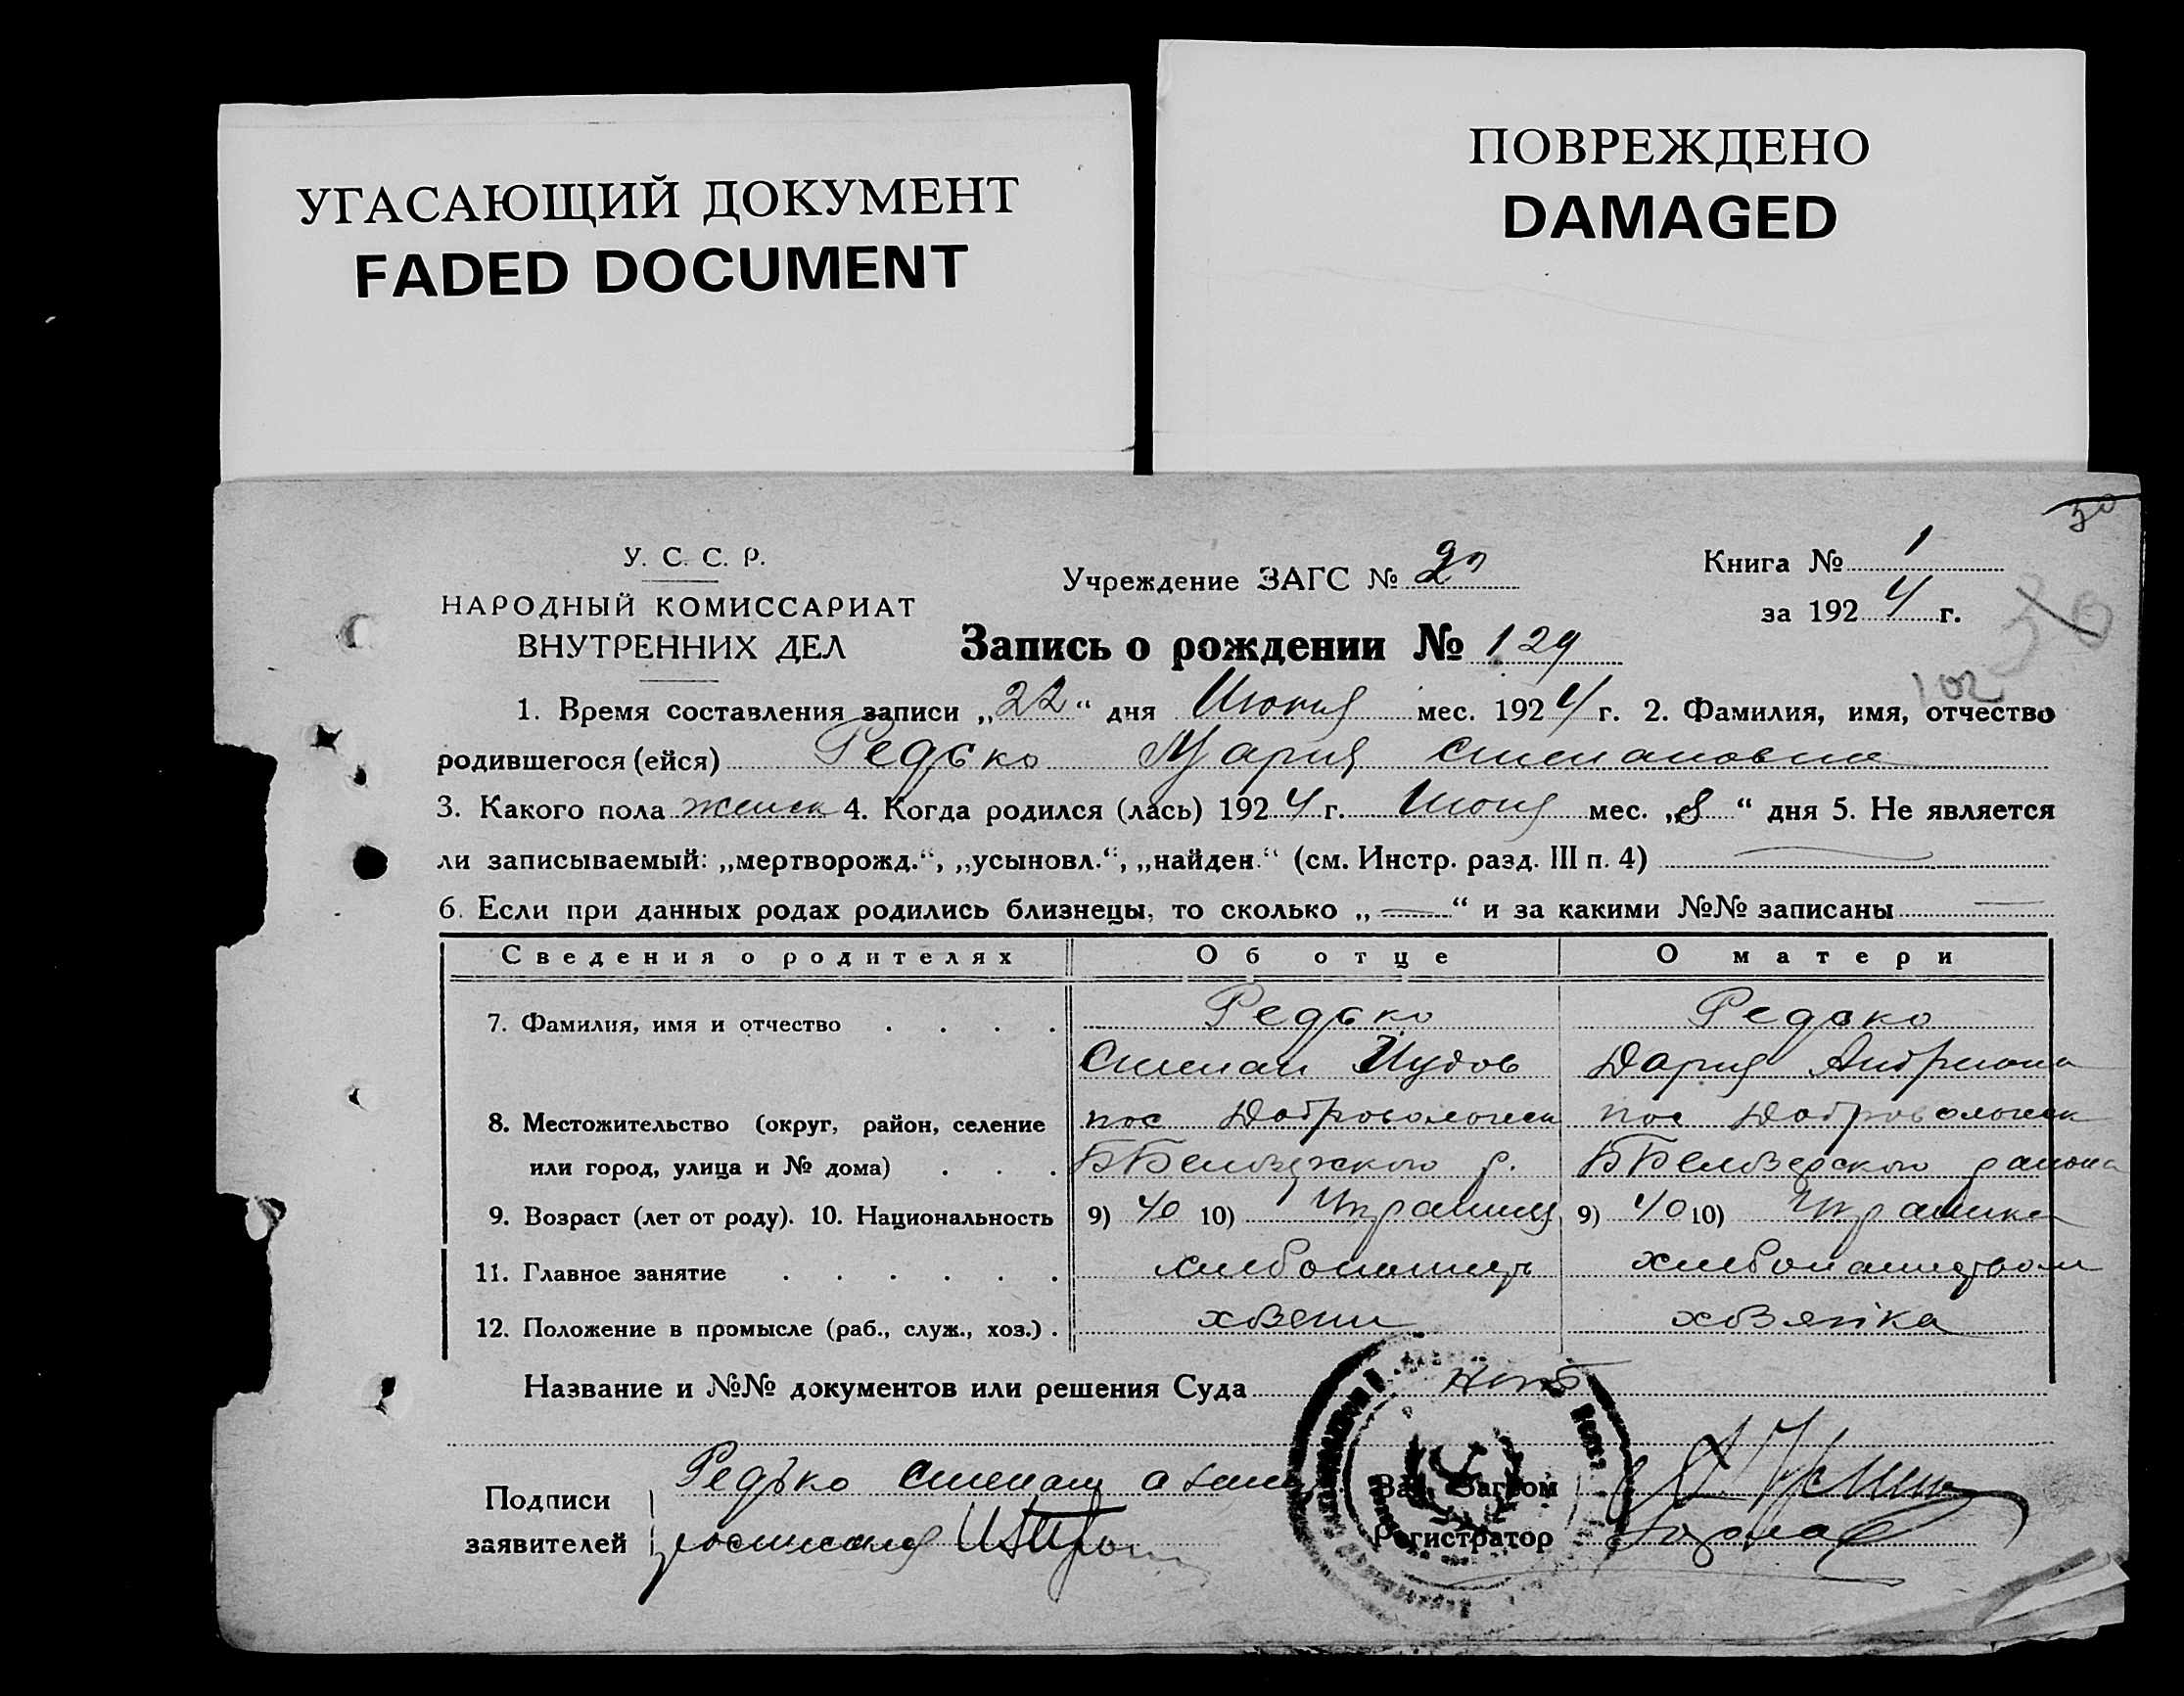 УГАСАЮЩИЙ ДОКУМЕНТ
FADED DOCUMENT
ПОВРЕЖДЕНО
DAMAGED
50
У. С. С. Р.
НАРОДНЫЙ КОМИССАРИАТ
ВНУТРЕННИХ ДЕЛ
Учреждение ЗАГС №
Книга № 1
за 1924 г.
Запись о рождении № 129
102
1. Время составления записи „22“ дня Июня мес. 1924 г. 2. Фамилия, имя, отчество
родившегося (ейся) Редько Мария Степановна
3. Какого пола женск 4. Когда родился (лась) 1924 г. Июня мес. „8“ дня 5. Не является
ли записываемый: „мертворожд.“, „усыновл.“, „найден.“ (см. Инстр. разд. III п. 4)
6. Если при данных родах родились близнецы, то сколько „—“ и за какими №№ записаны —
Сведения о родителях Об отце О матери
7. Фамилия, имя и отчество . . . . Редько Редько
Степан Иудов Дария
8. Местожительство (округ, район, селение пос Добровольческ пос Добровольческ
или город, улица и № дома) . . . ББелозерского р. ББелозерского района
9. Возраст (лет от роду). 10. Национальность 9) 40 10) Украинец 9) 40 10) Украинка
11. Главное занятие . . . . . . хлебопашец хлебопашеством
12. Положение в промысле (раб., служ., хоз.) . хозяин хозяйка
Название и №№ документов или решения Суда нет
Подписи
заявителей
Редько Степан а за него
росписался
Зав. Загсом
Регистратор